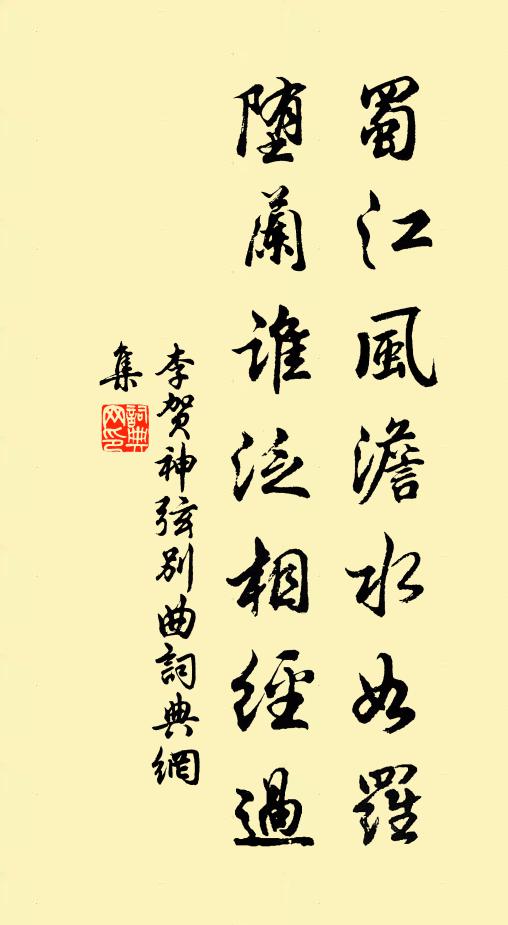 蜀江風澹水如羅
墮蘭誰泛相經過
李贺神弦别曲詞典網
集
詞典
网印